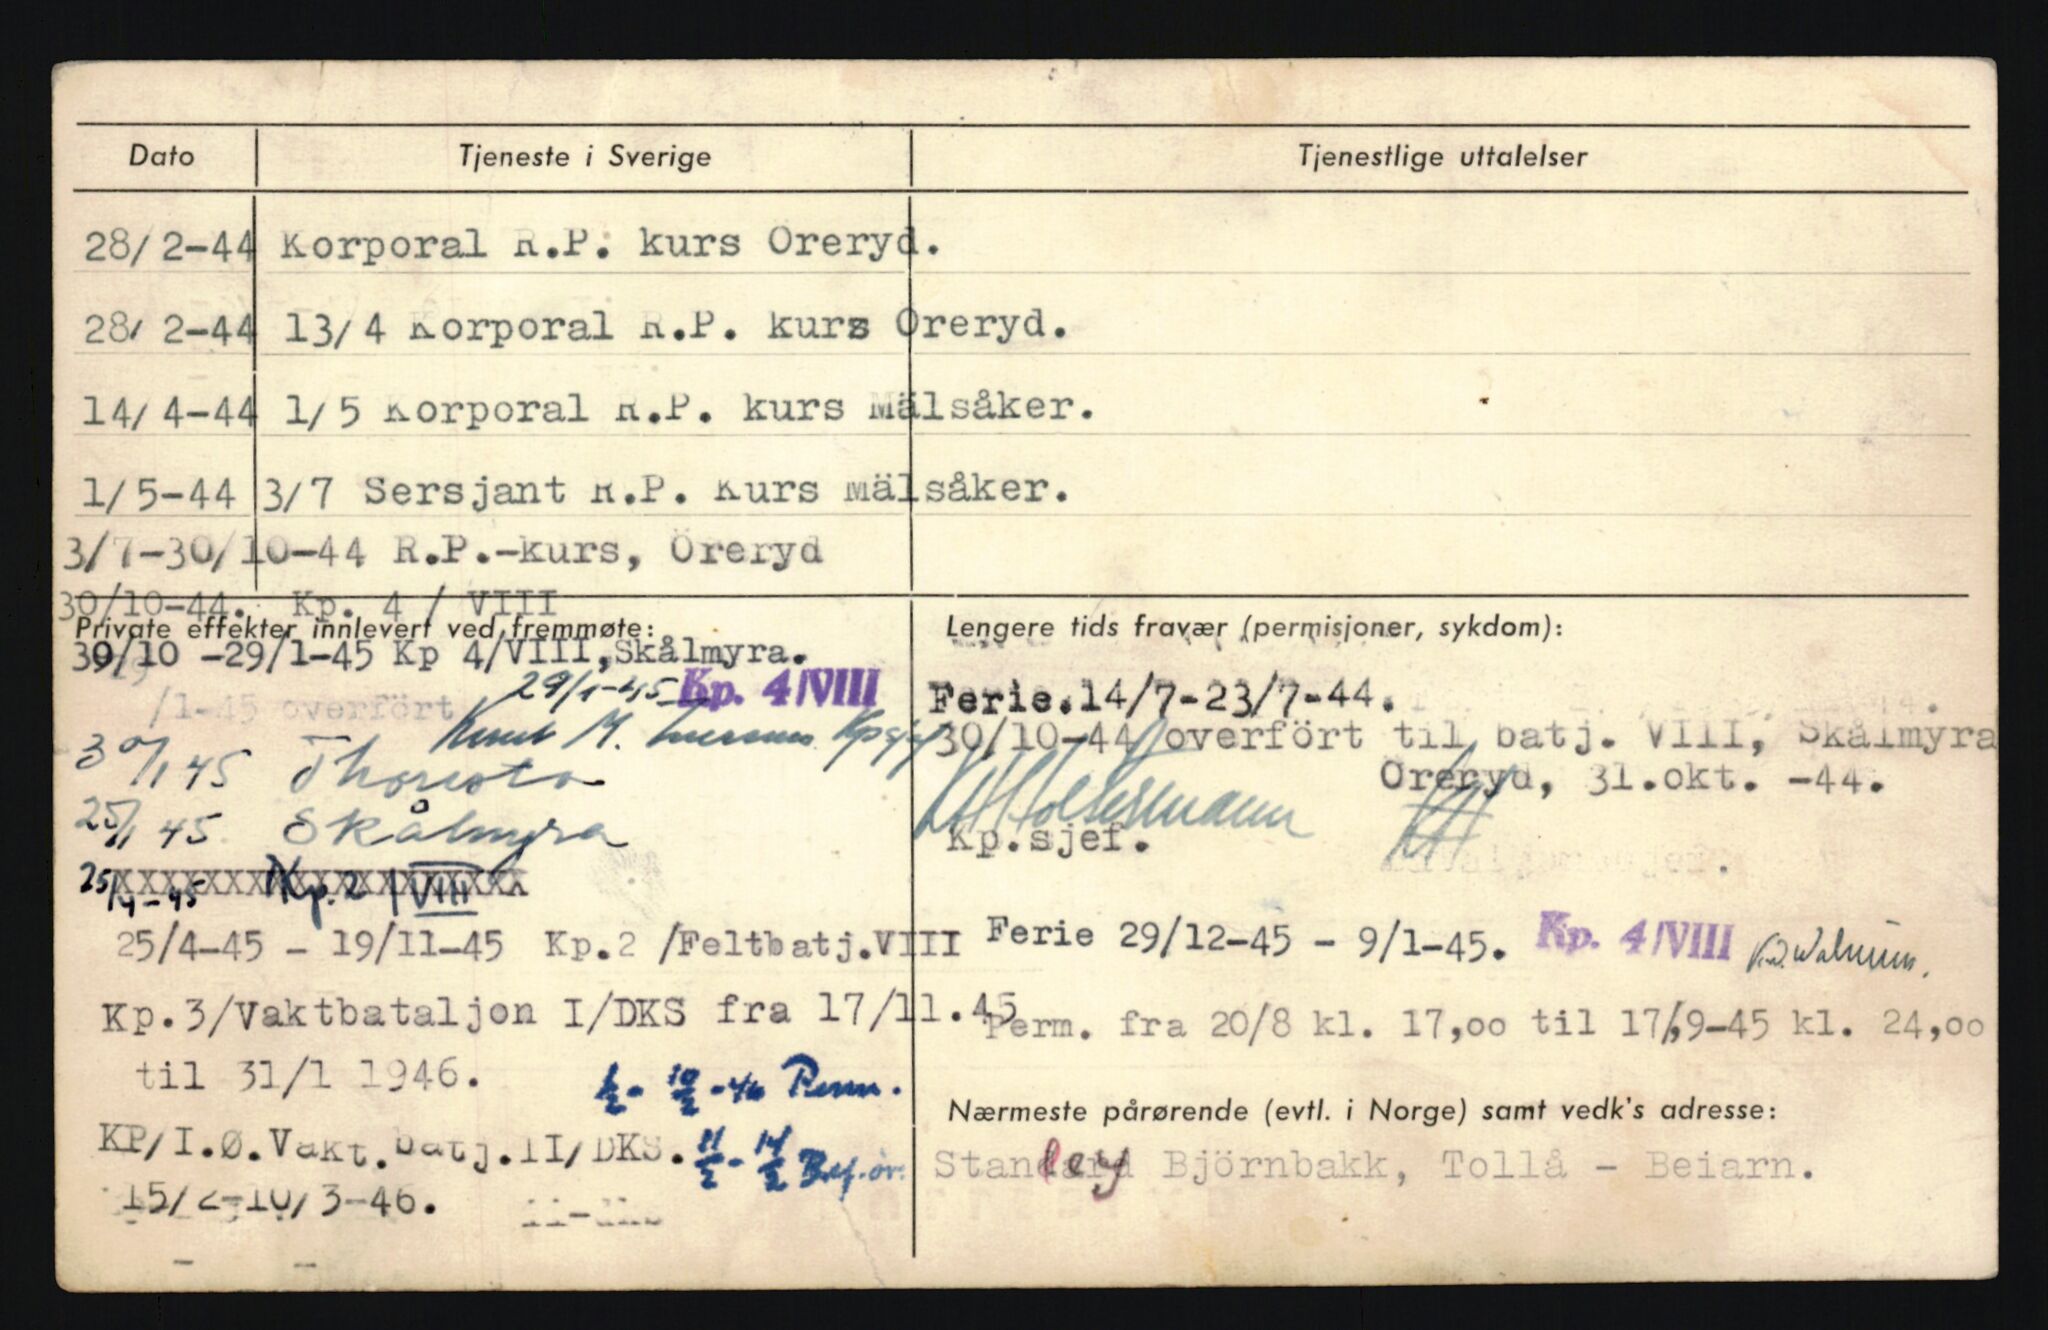 Dato Tjeneste i Sverige Tjenestlige uttalelser
28/ 2-44 Korporal R.P. kurs Öreryd.
28/ 2-44 13/4 Korporal R.P. kurs Öreryd.
14/ 4-44 1/5 Korporal R.P. kurs Mälsåker.
1/5-44 3/7 Sersjant R.P. Kurs Mälsåker.
3/7-30/10-44 R.P.-kurs, Öreryd
30/10-44. Kp. 4 / VIII
Private effekter innlevert ved fremmøte:
30/10 -29/1-45 Kp 4/VIII, Skålmyra.
29/1-45 Kp. 4/VIII
/1-45 overfört
Knut M. Kpsjef
30/1 45 Thorsta
25/1 45 Skålmyra
25/4-45 xxxxxxxxxxxxxxxxxx Kp. 2 / VIII
25/4-45 - 19/11-45 Kp.2 /Feltbatj.VIII
Kp.3/Vaktbataljon I/DKS fra 17/11.45
til 31/1 1946.
1/2 - 10/2 -46 Perm.
KP/I.Ø.Vakt.batj.II/DKS.
11/2 - 14/2 Bef. ov.
15/2-10/3-46.
Lengere tids fravær (permisjoner, sykdom):
Ferie.14/7-23/7-44.
30/10-44 overfört til batj. VIII, Skålmyra
Öreryd, 31.okt. -44.
Kp.sjef.
Ferie 29/12-45 - 9/1-45. Kp. 4/VIII
Perm. fra 20/8 kl. 17,oo til 17/9-45 kl. 24,oo
Nærmeste pårørende (evtl. i Norge) samt vedk's adresse:
Stanley Björnbakk, Tollå - Beiarn.